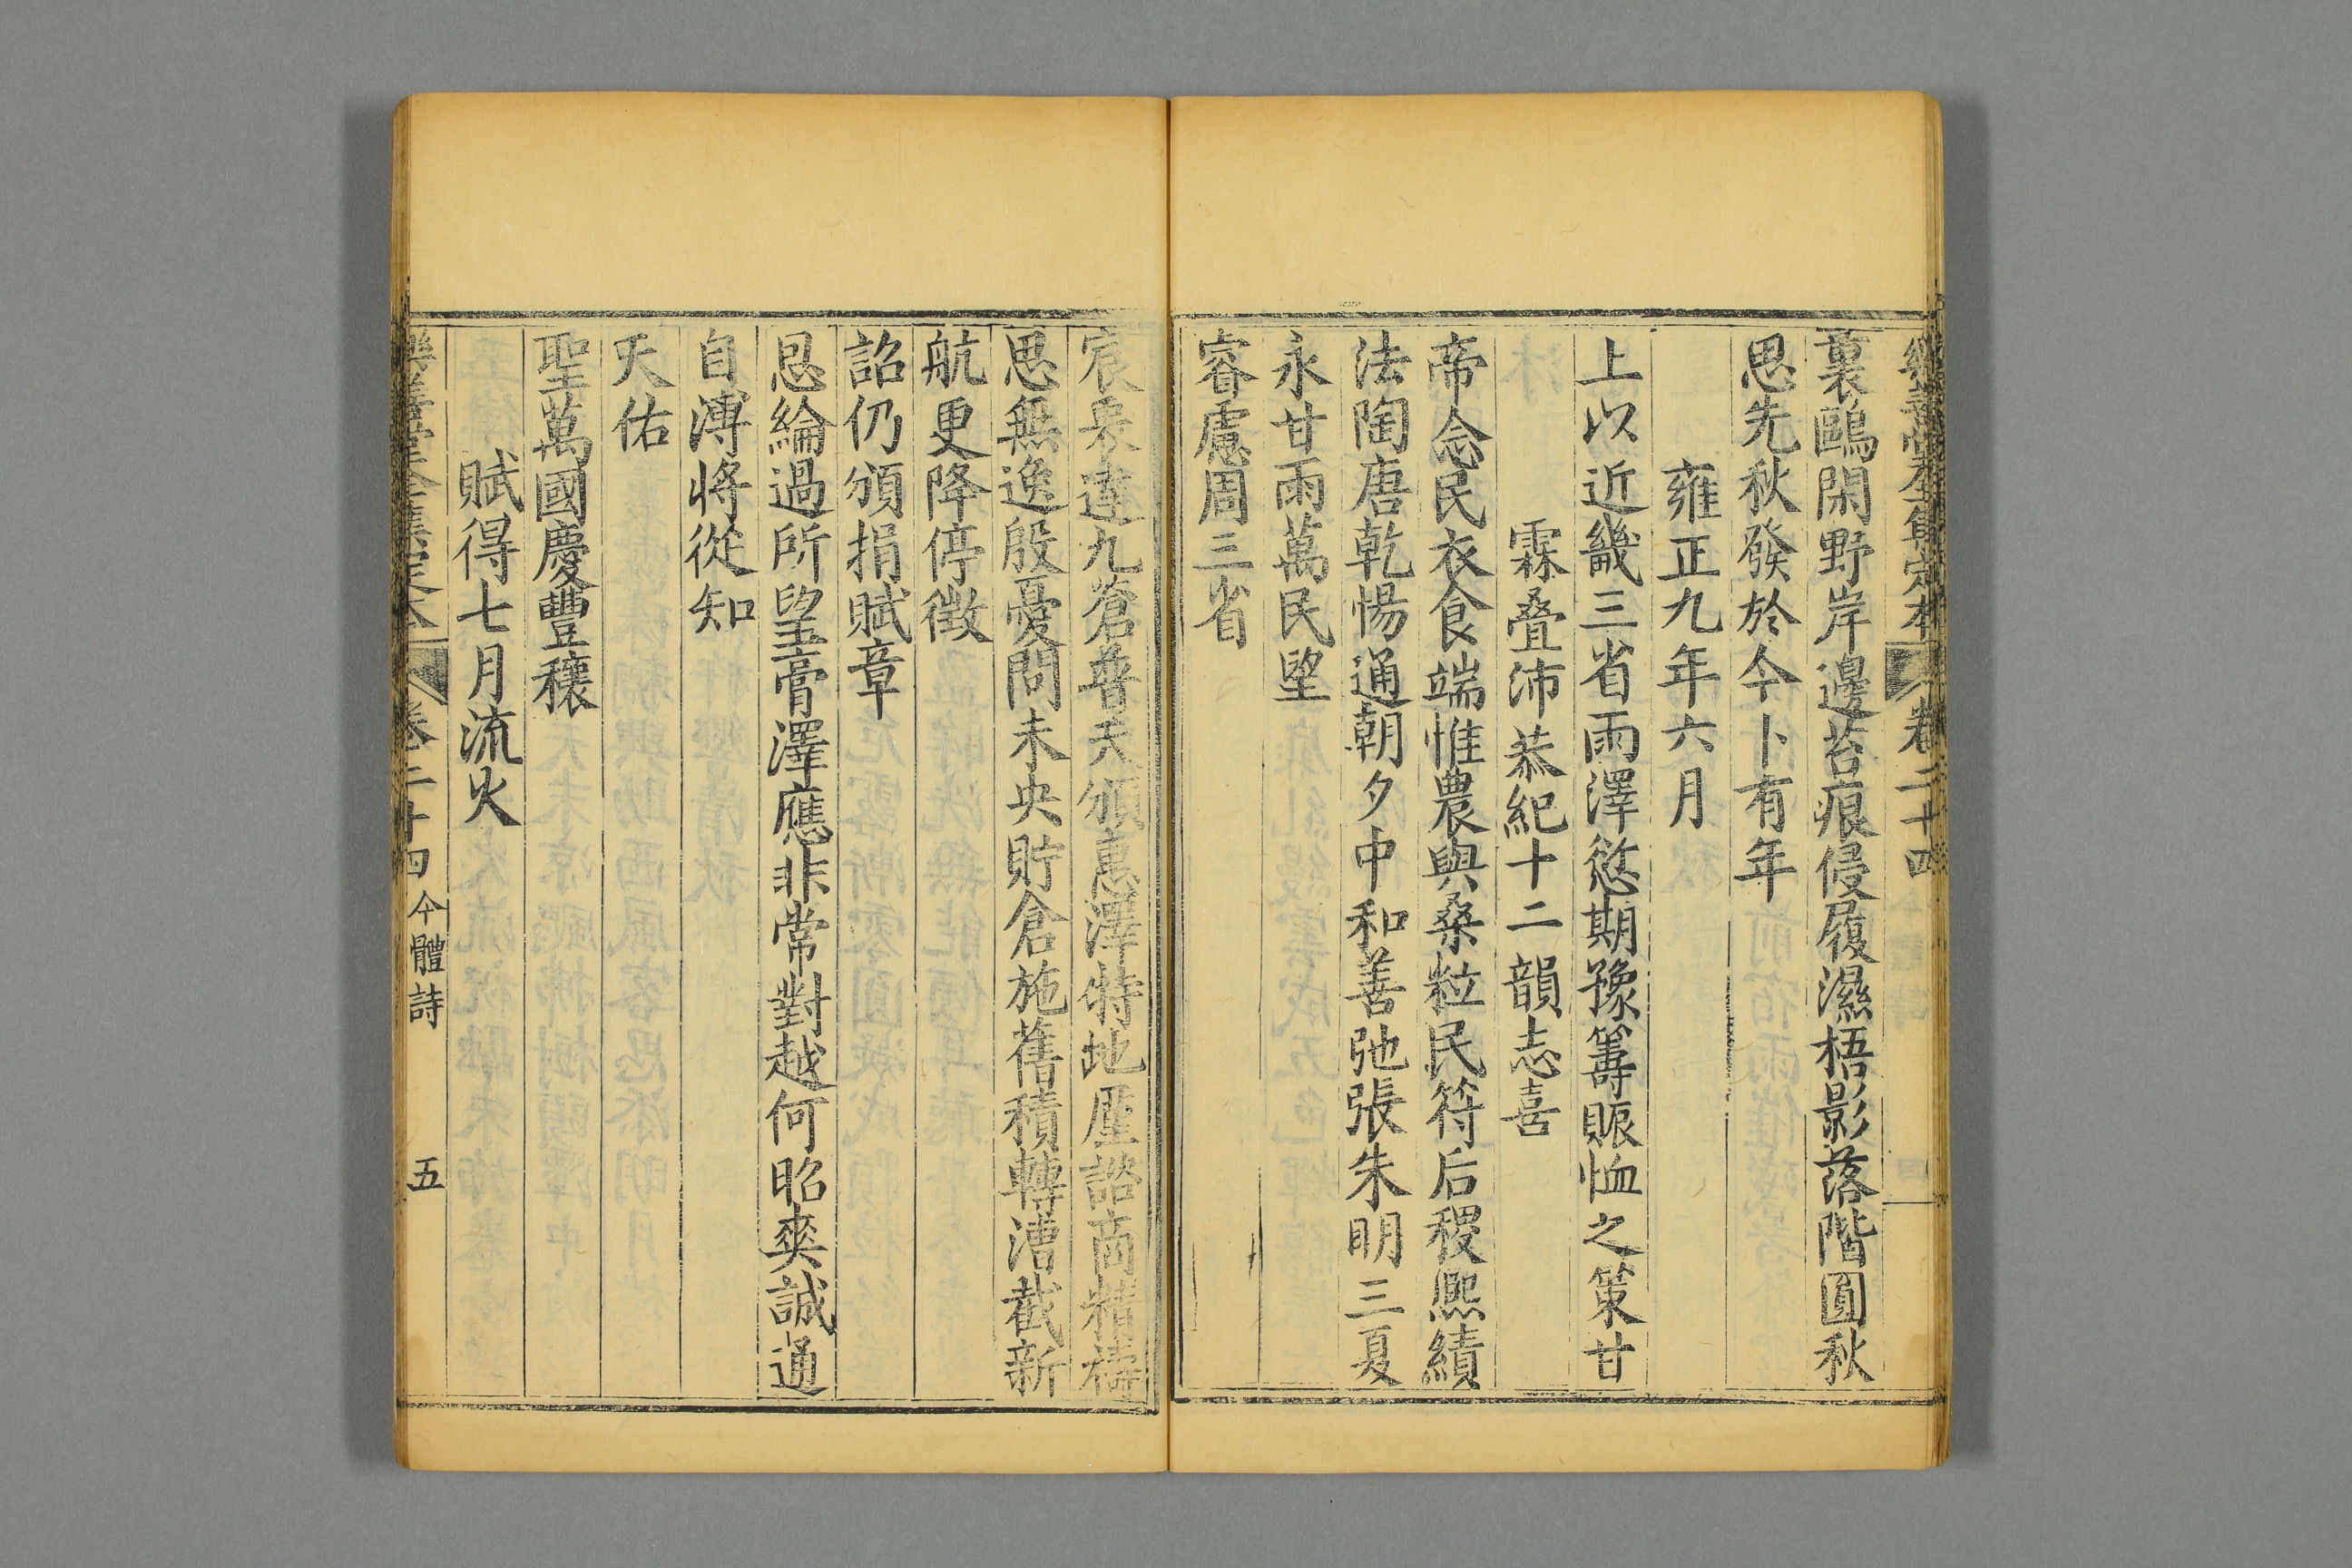 樂善堂全集定本 卷二十四
裏鷗閑野岸邊苔痕侵履濕梧影落階圓秋
思先秋發於今卜有年
雍正九年六月
上以近畿三省雨澤愆期豫籌賑恤之策甘
霖疊沛恭紀十二韻志喜
帝念民衣食端惟農與桑粒民符后稷熙績
法陶唐乾惕通朝夕中和善弛張朱明三夏
永甘雨萬民望
睿慮周三省
宸衷達九蒼普天頒惠澤特地廑諮商精禱
思無逸殷憂問未央貯倉施舊積轉漕截新
航更降停徵
詔仍頒捐賦章
恩綸過所望膏澤應非常對越何昭爽誠通
自溥將從知
天佑
聖萬國慶豐穰
賦得七月流火
樂善堂全集定本 卷二十四 今體詩 五